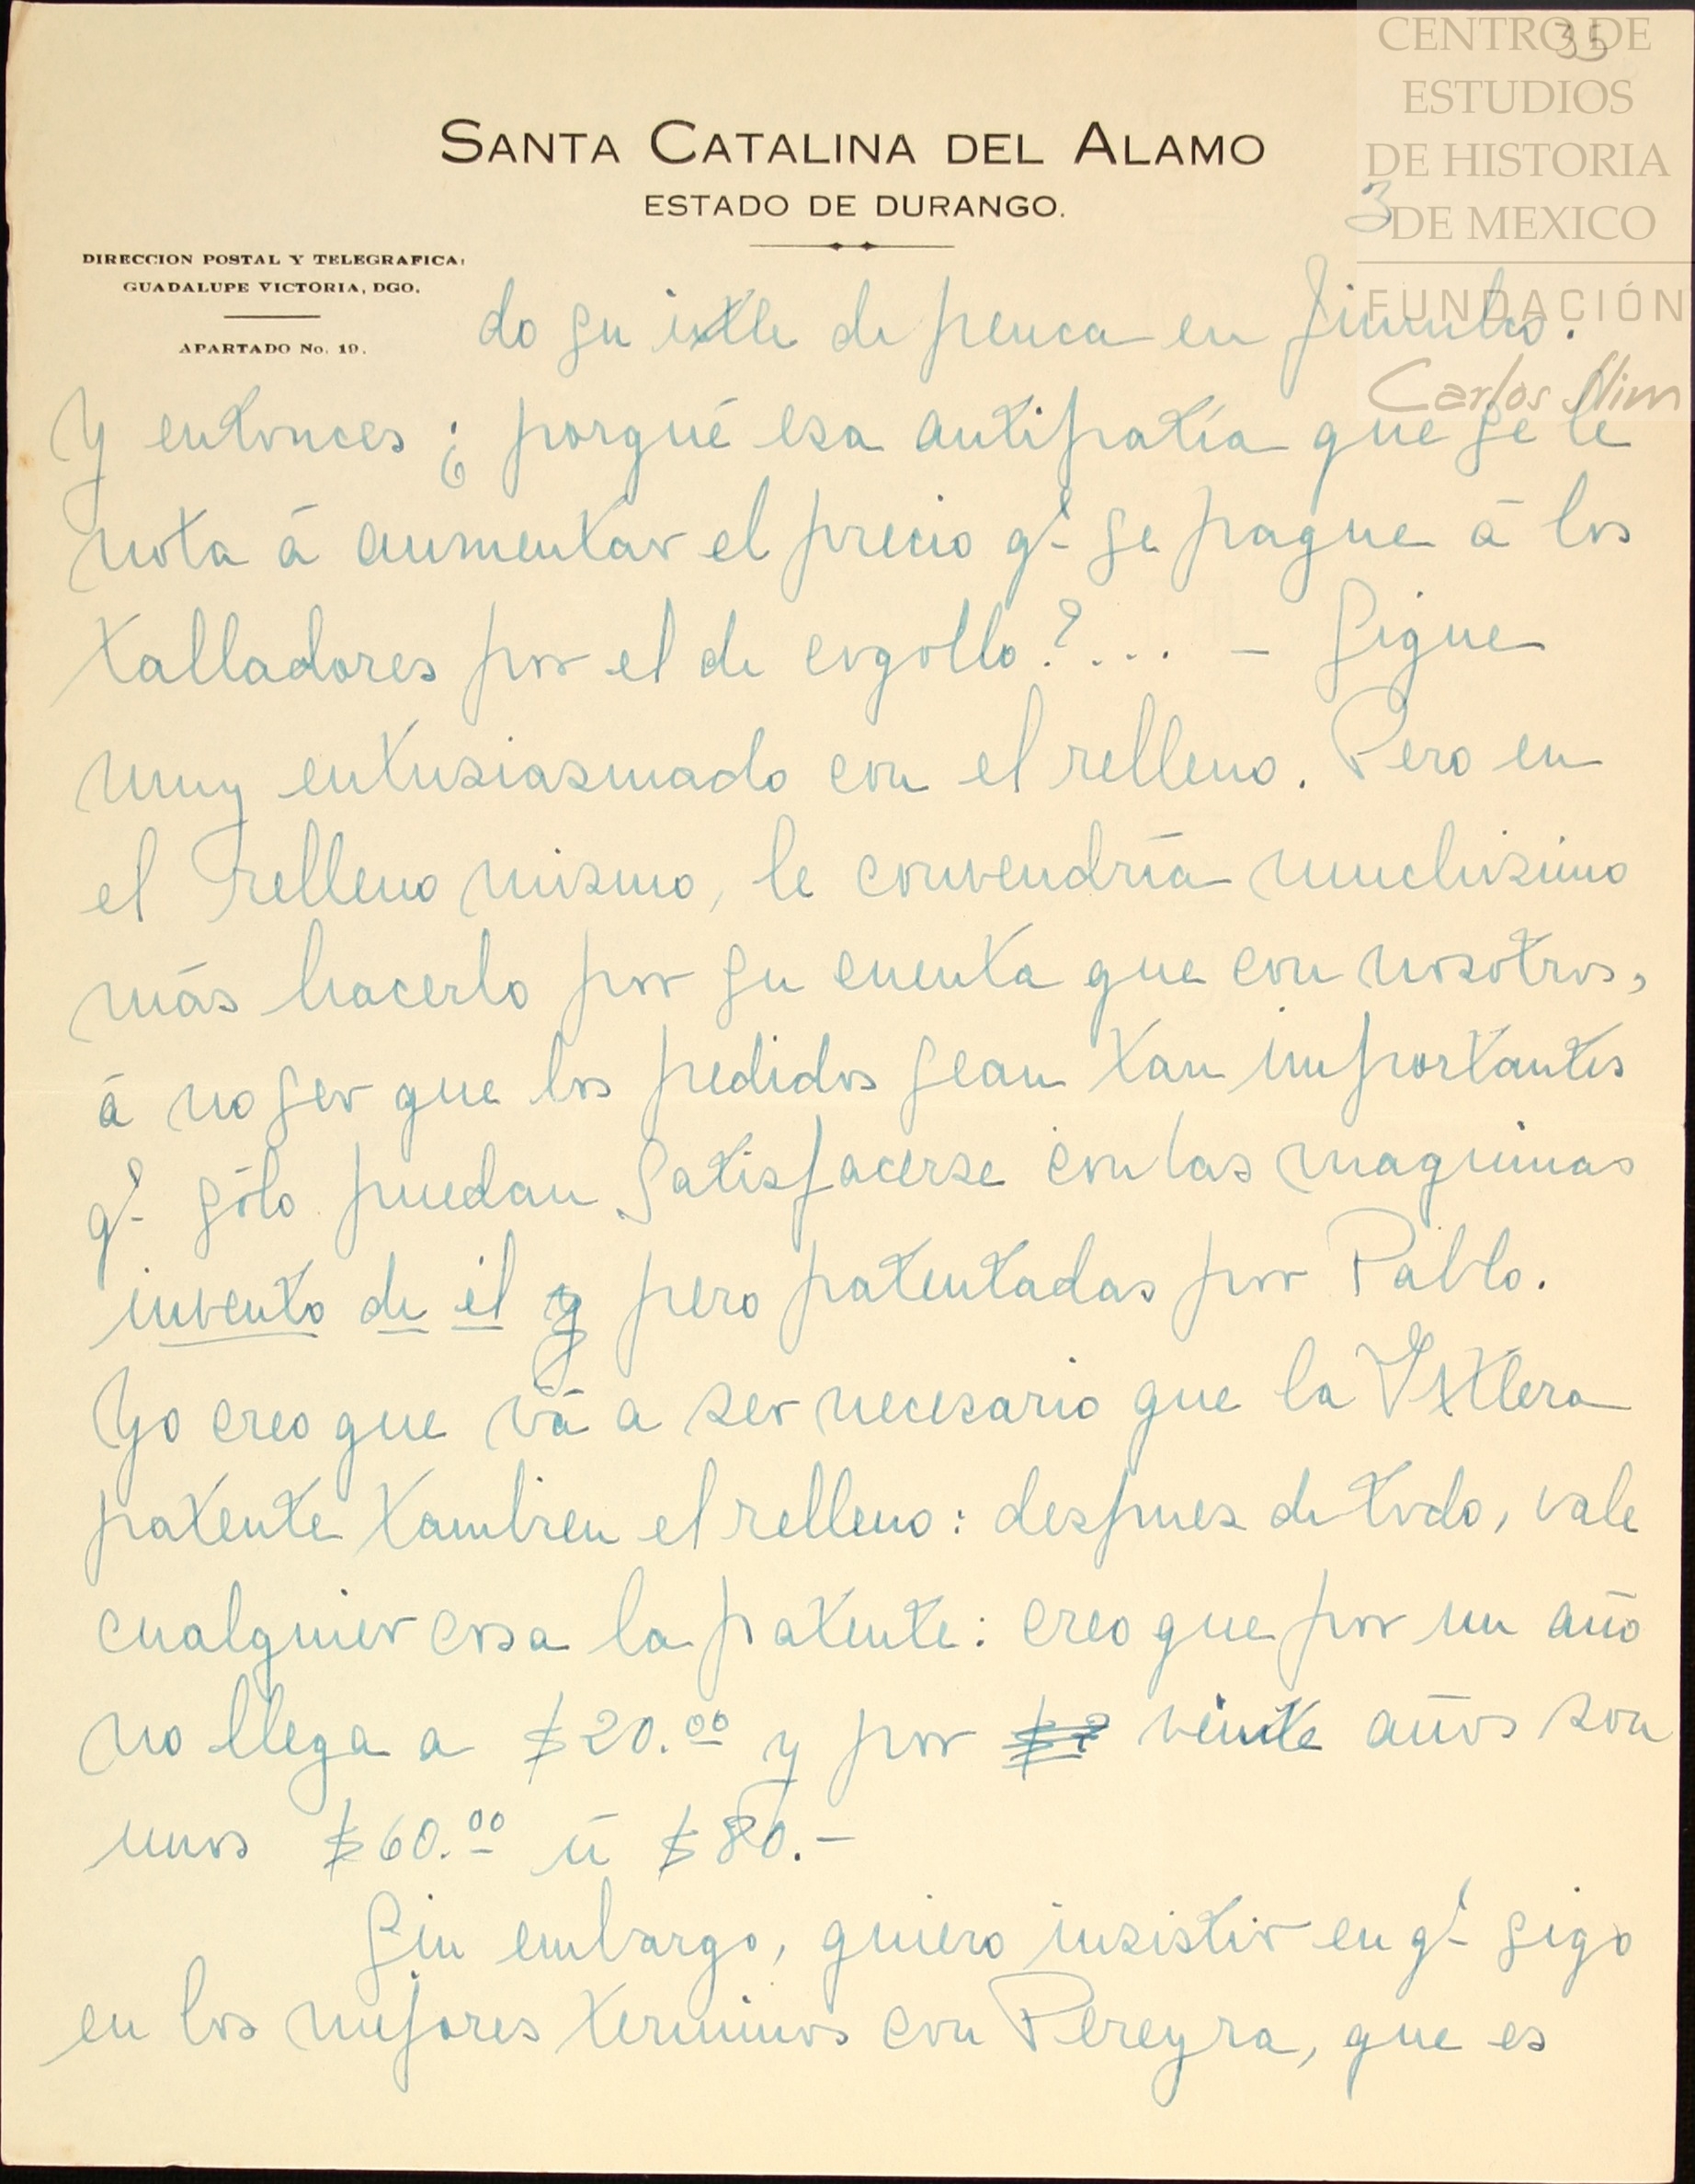 35
CENTRO DE
ESTUDIOS
DE HISTORIA
DE MEXICO
FUNDACIÓN
Carlos Slim
SANTA CATALINA DEL ALAMO
ESTADO DE DURANGO.
3
DIRECCION POSTAL Y TELEGRAFICA:
GUADALUPE VICTORIA, DGO.
APARTADO No. 19.
do su ixtle de penca en Jimulco.
Y entonces ¿ porqué esa antipatía que se le
nota á aumentar el precio qe se pague á los
talladores por el de cogollo?... - Sigue
muy entusiasmado con el relleno. Pero en
el relleno mismo, le convendría muchisimo
más hacerlo por su cuenta que con nosotros,
á no ser que los pedidos sean tan importantes
qe sólo puedan satisfacerse con las maquinas
invento de él y pero patentadas por Pablo.
Yo creo que vá a ser necesario que la Ixtlera
patente tambien el relleno: despues de todo, vale
cualquier cosa la patente: creo que por un año
no llega a $20.00 y por veinte años son
unos $60.00 ú $80.-
Sin embargo, quiero insistir en qe sigo
en los mejores terminos con Pereyra, que es